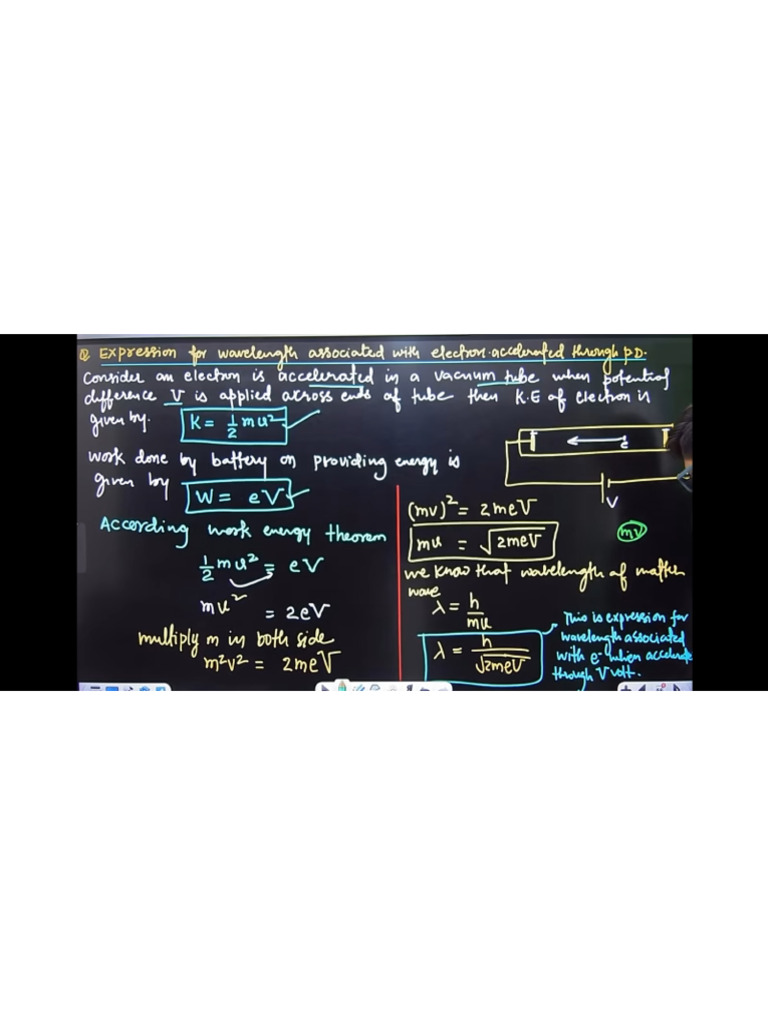 Q. Expression for wavelength associated with electron accelerated through P.D.
Consider an electron is accelerated in a vacuum tube when potential
difference V is applied across ends of tube then K.E of electron is
given by. K = 1/2 mu²
work done by battery on providing energy is
given by W = eV
According work energy theorem
1/2 mu² = eV
mu² = 2eV
multiply m in both side
m²v² = 2meV
e
V
mv
(mv)² = 2meV
mu = √2meV
we know that wavelength of matter
wave
λ = h/mu
λ = h/√2meV
This is expression for
wavelength associated
with e⁻ when accelerate
through V volt.